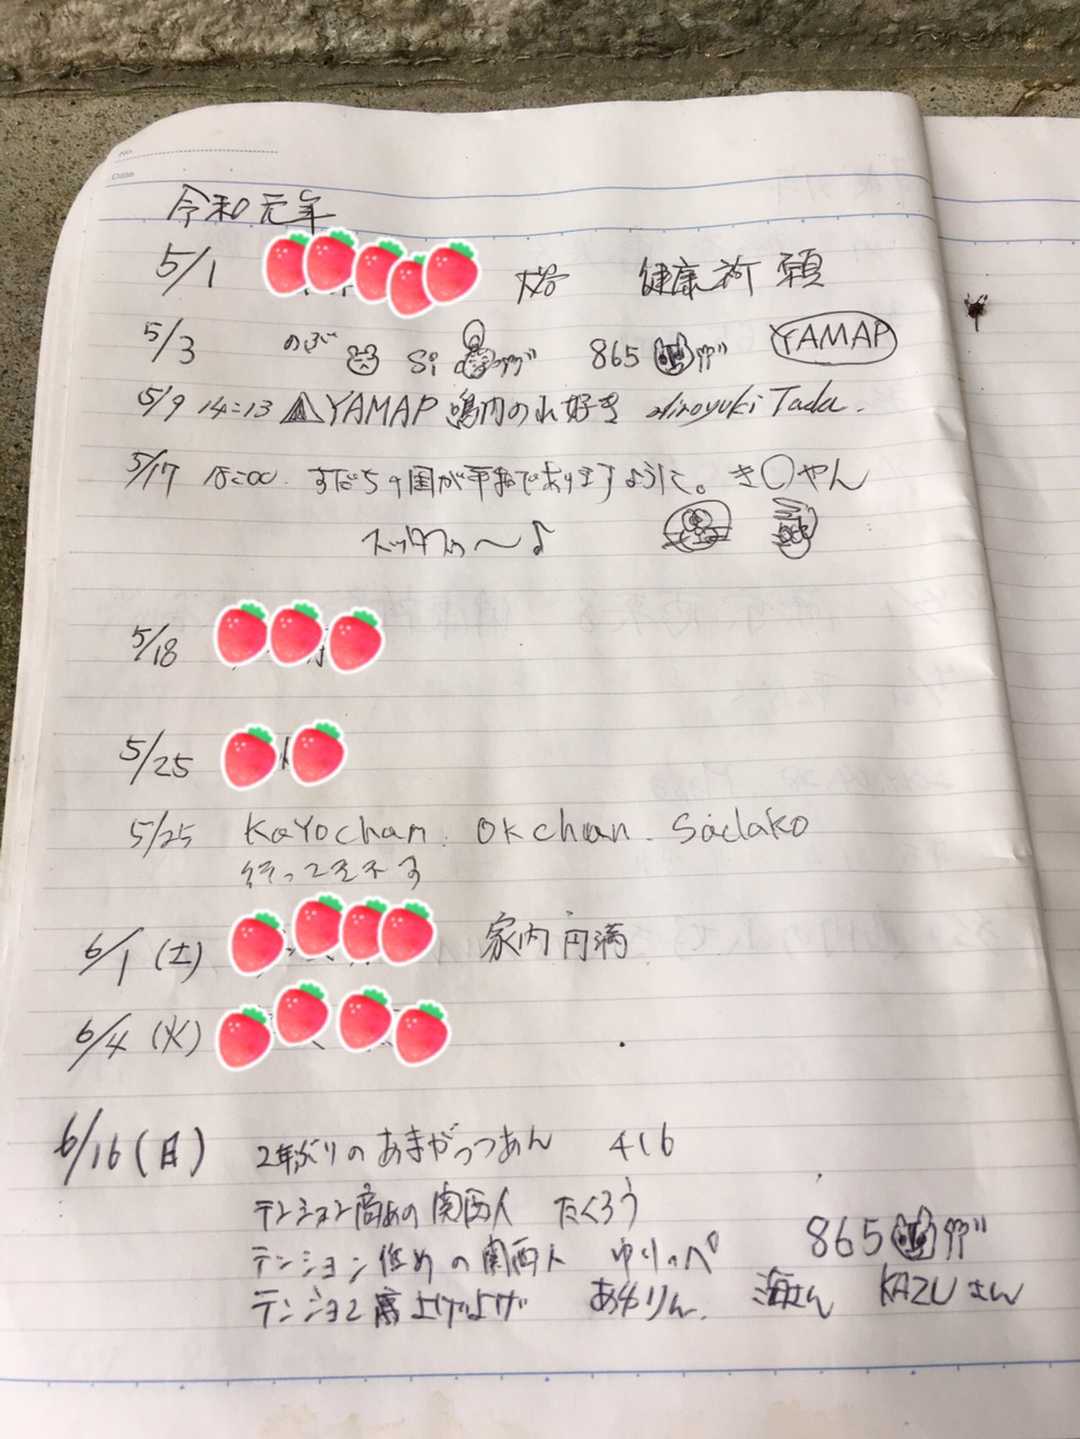 No.
Date
令和元年
5/1 健康祈願
5/3 のぶ Si 865 YAMAP
5/9 14:13 YAMAP 鳴門のれ好き Hiroyuki Tada.
5/17 すだち国が平和でありますように。 き〇やん
〜♪
5/18
5/25
5/25 Kayochan. Okchan. Sadako
行ってきます
6/1 (土) 家内円満
6/4 (火)
6/16 (日) 2年ぶりのあまがっつあん 416
テンション高めの関西人 たくろう
テンション低めの関西人 ゆりっぺ 865
テンション 上げ上げ あゆりん. 海さん KAZUさん